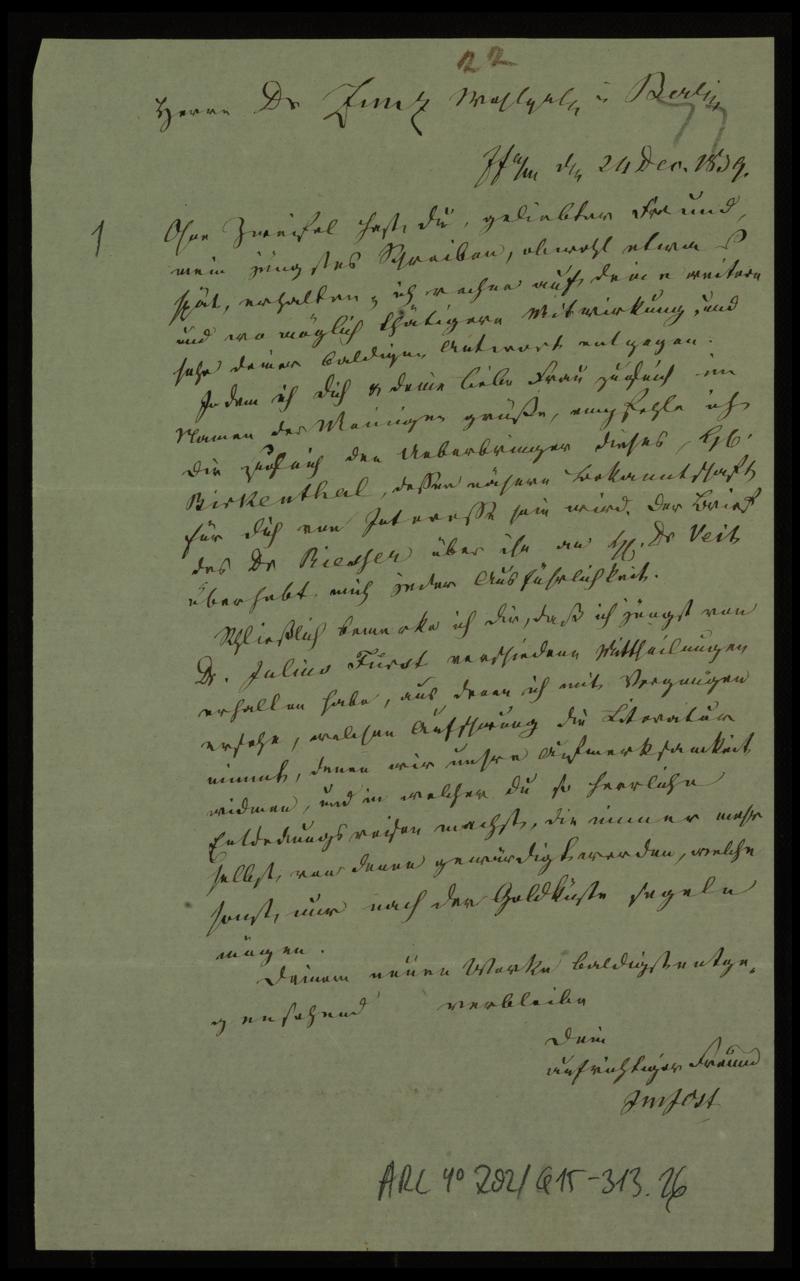 22
Herrn Dr Zunz Wohlgeb. in Berlin
Ff a/m den 24 Dec. 1839.
1
Ohne Zweifel hast du, geliebter Freund,
mein jüngstes Schreiben, obwohl etwas
spät, erhalten; ich rechne auf deine weitere
und wo möglich thätigere Mitwirkung, und
sehe deiner baldigen Antwort entgegen.
Indem ich dich & deine liebe Frau zugleich im
Namen der Meinigen grüße, empfehle ich
dir zugleich den Ueberbringer dieses, H.
Birkenthal, dessen nähere Bekanntschaft
für dich von Interesse sein wird. Der Brief
des Dr Riesser über ihn an H. Dr Veit
überhebt mich jeder Ausführlichkeit.
Schließlich bemerke ich dir, daß ich jüngst von
Dr. Julius Fürst verschiedene Mittheilungen
erhalten habe, aus denen ich mit Vergnügen
ersehe, welchen Aufschwung die Literatur
nimmt, denen wir unsre Aufmerksamkeit
widmen, und in welcher du so herrliche
Entdeckungsreisen machst, die immer mehr
selbst von denen gewürdigt werden, welche
sonst nur nach der Goldküste segeln
mögen.
Deinem neuen Werke baldigst entge-
gensehend verbleibe
Dein
aufrichtiger Freund
JmJost
ARC 4° 792/G15-313.26